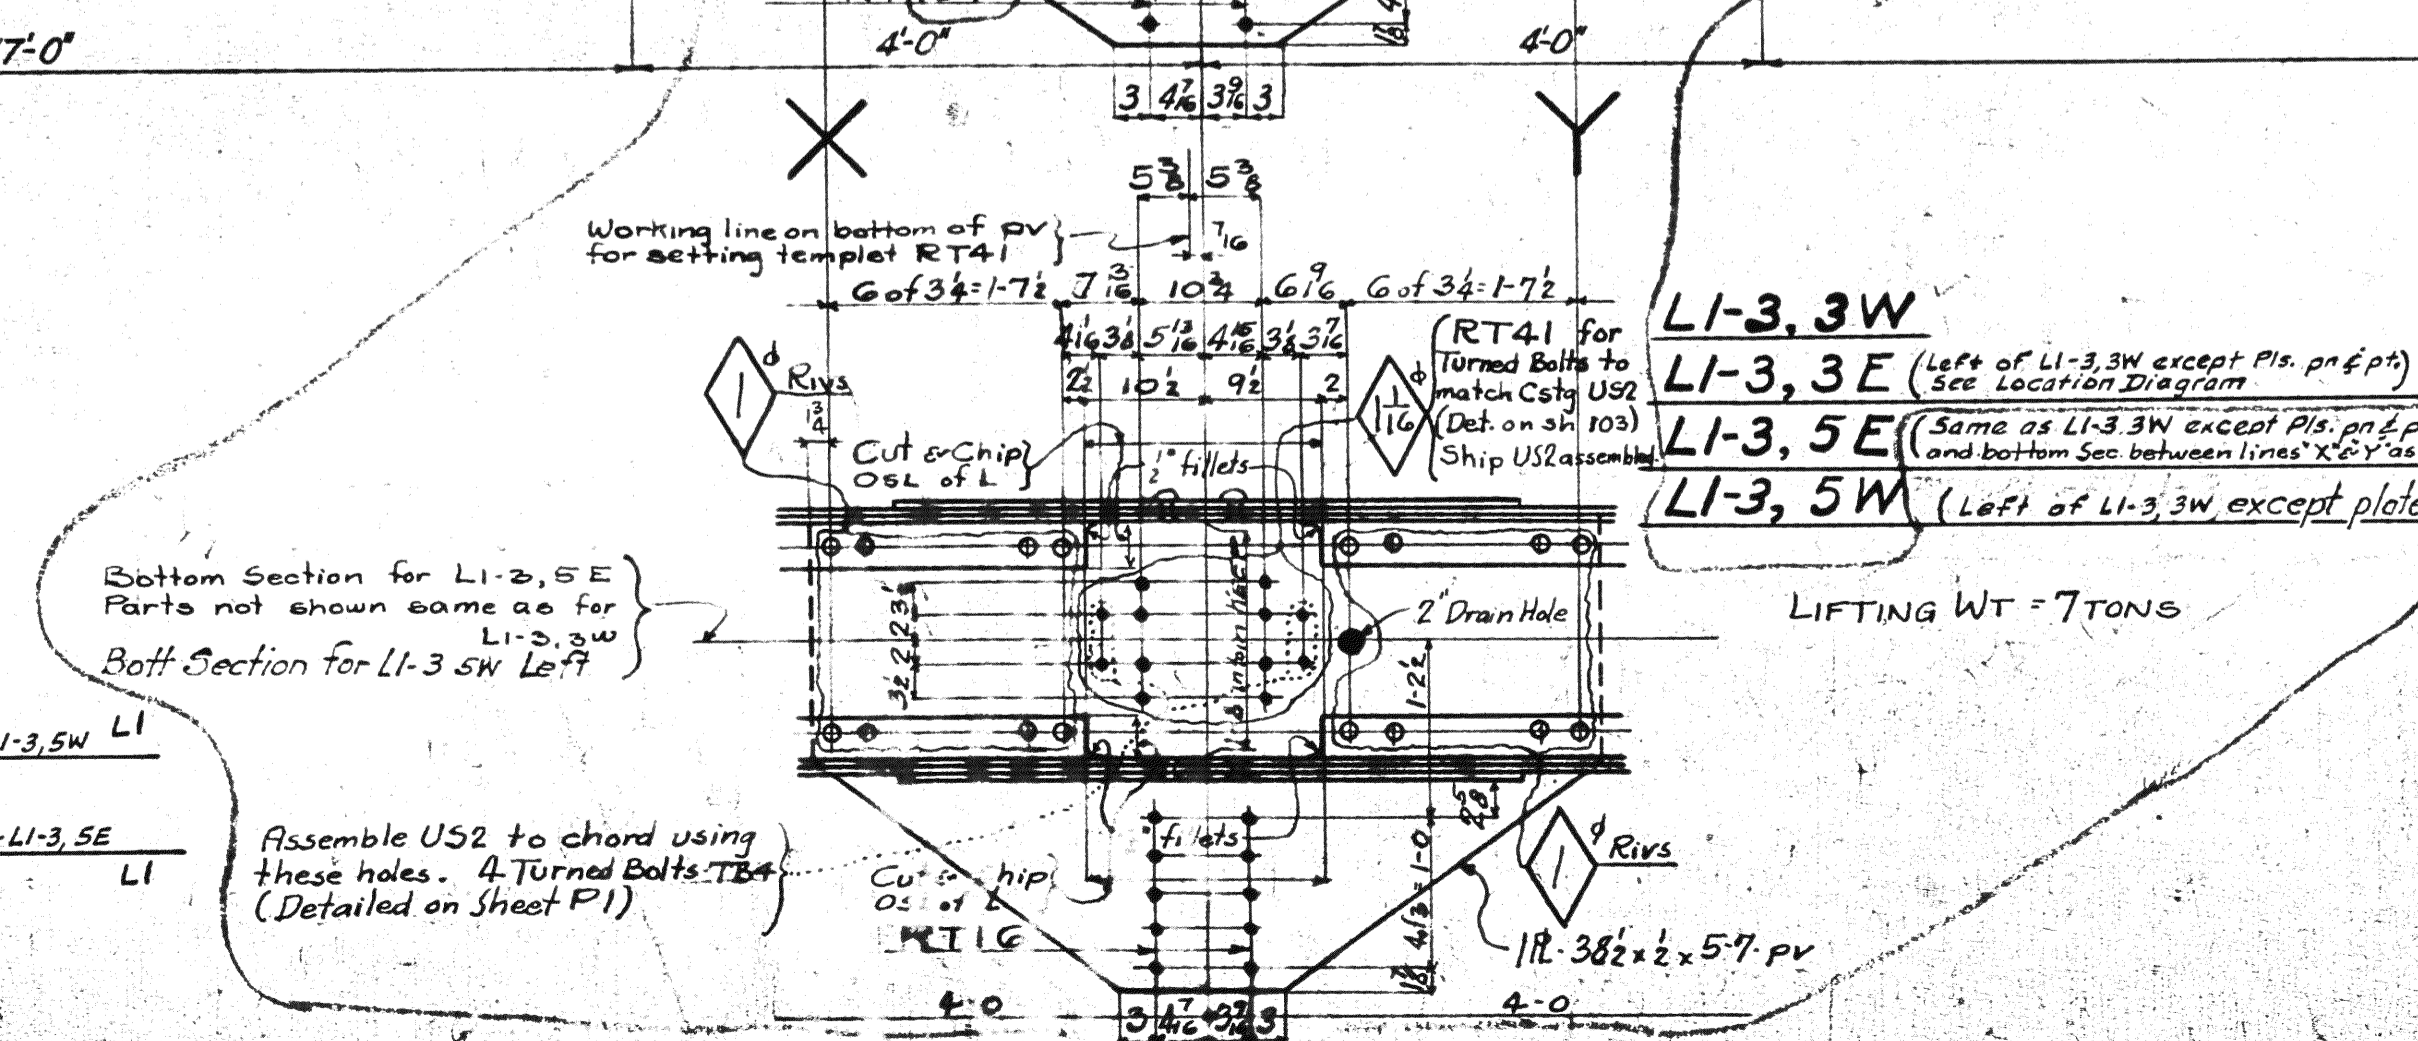 7'-0"
4'-0"
4'-0"
3 4 7/16 3 9/16 3
X
Y
5 3/8 5 3/8
Working line on bottom of pv
for setting templet RT41
7/16
6 of 3 1/4 = 1-7 1/2 7 3/16 10 3/4 6 9/16 6 of 3 1/4 = 1-7 1/2
4 1/16 3 1/8 5 13/16 4 15/16 3 1/8 3 7/16
2 1/2 10 1/2 9 1/2 2
1 φ Rivs
1 3/4
Cut & Chip
OSL of L
1/2" fillets
1 1/16 φ
RT41 for
Turned Bolts to
match Cstg US2
(Det. on sh 103)
Ship US2 assembled
L1-3, 3W
L1-3, 3E (Left of L1-3, 3W except Pls. pn & pt.)
See Location Diagram
L1-3, 5E (Same as L1-3.3W except Pls. pn & p
and bottom Sec. between lines "X" & "Y" as
L1-3, 5W (Left of L1-3, 3W except plate
Bottom Section for L1-3, 5E
Parts not shown same as for
L1-3, 3W
Bott Section for L1-3 5W Left
3 1/2 2 2 3 1/2
2" Drain Hole
1-2 1/2
LIFTING WT = 7 TONS
1-3, 5W L1
-L1-3, 5E
L1
Assemble US2 to chord using
these holes. 4 Turned Bolts TB4
(Detailed on Sheet P1)
fillets
hip
RT16
2 5/8
4 @ 3 = 1-0
1 φ Rivs
1 Pl. 38 1/2 x 1/2 x 5-7 pv
4-0
4-0
3 4 7/16 3 9/16 3